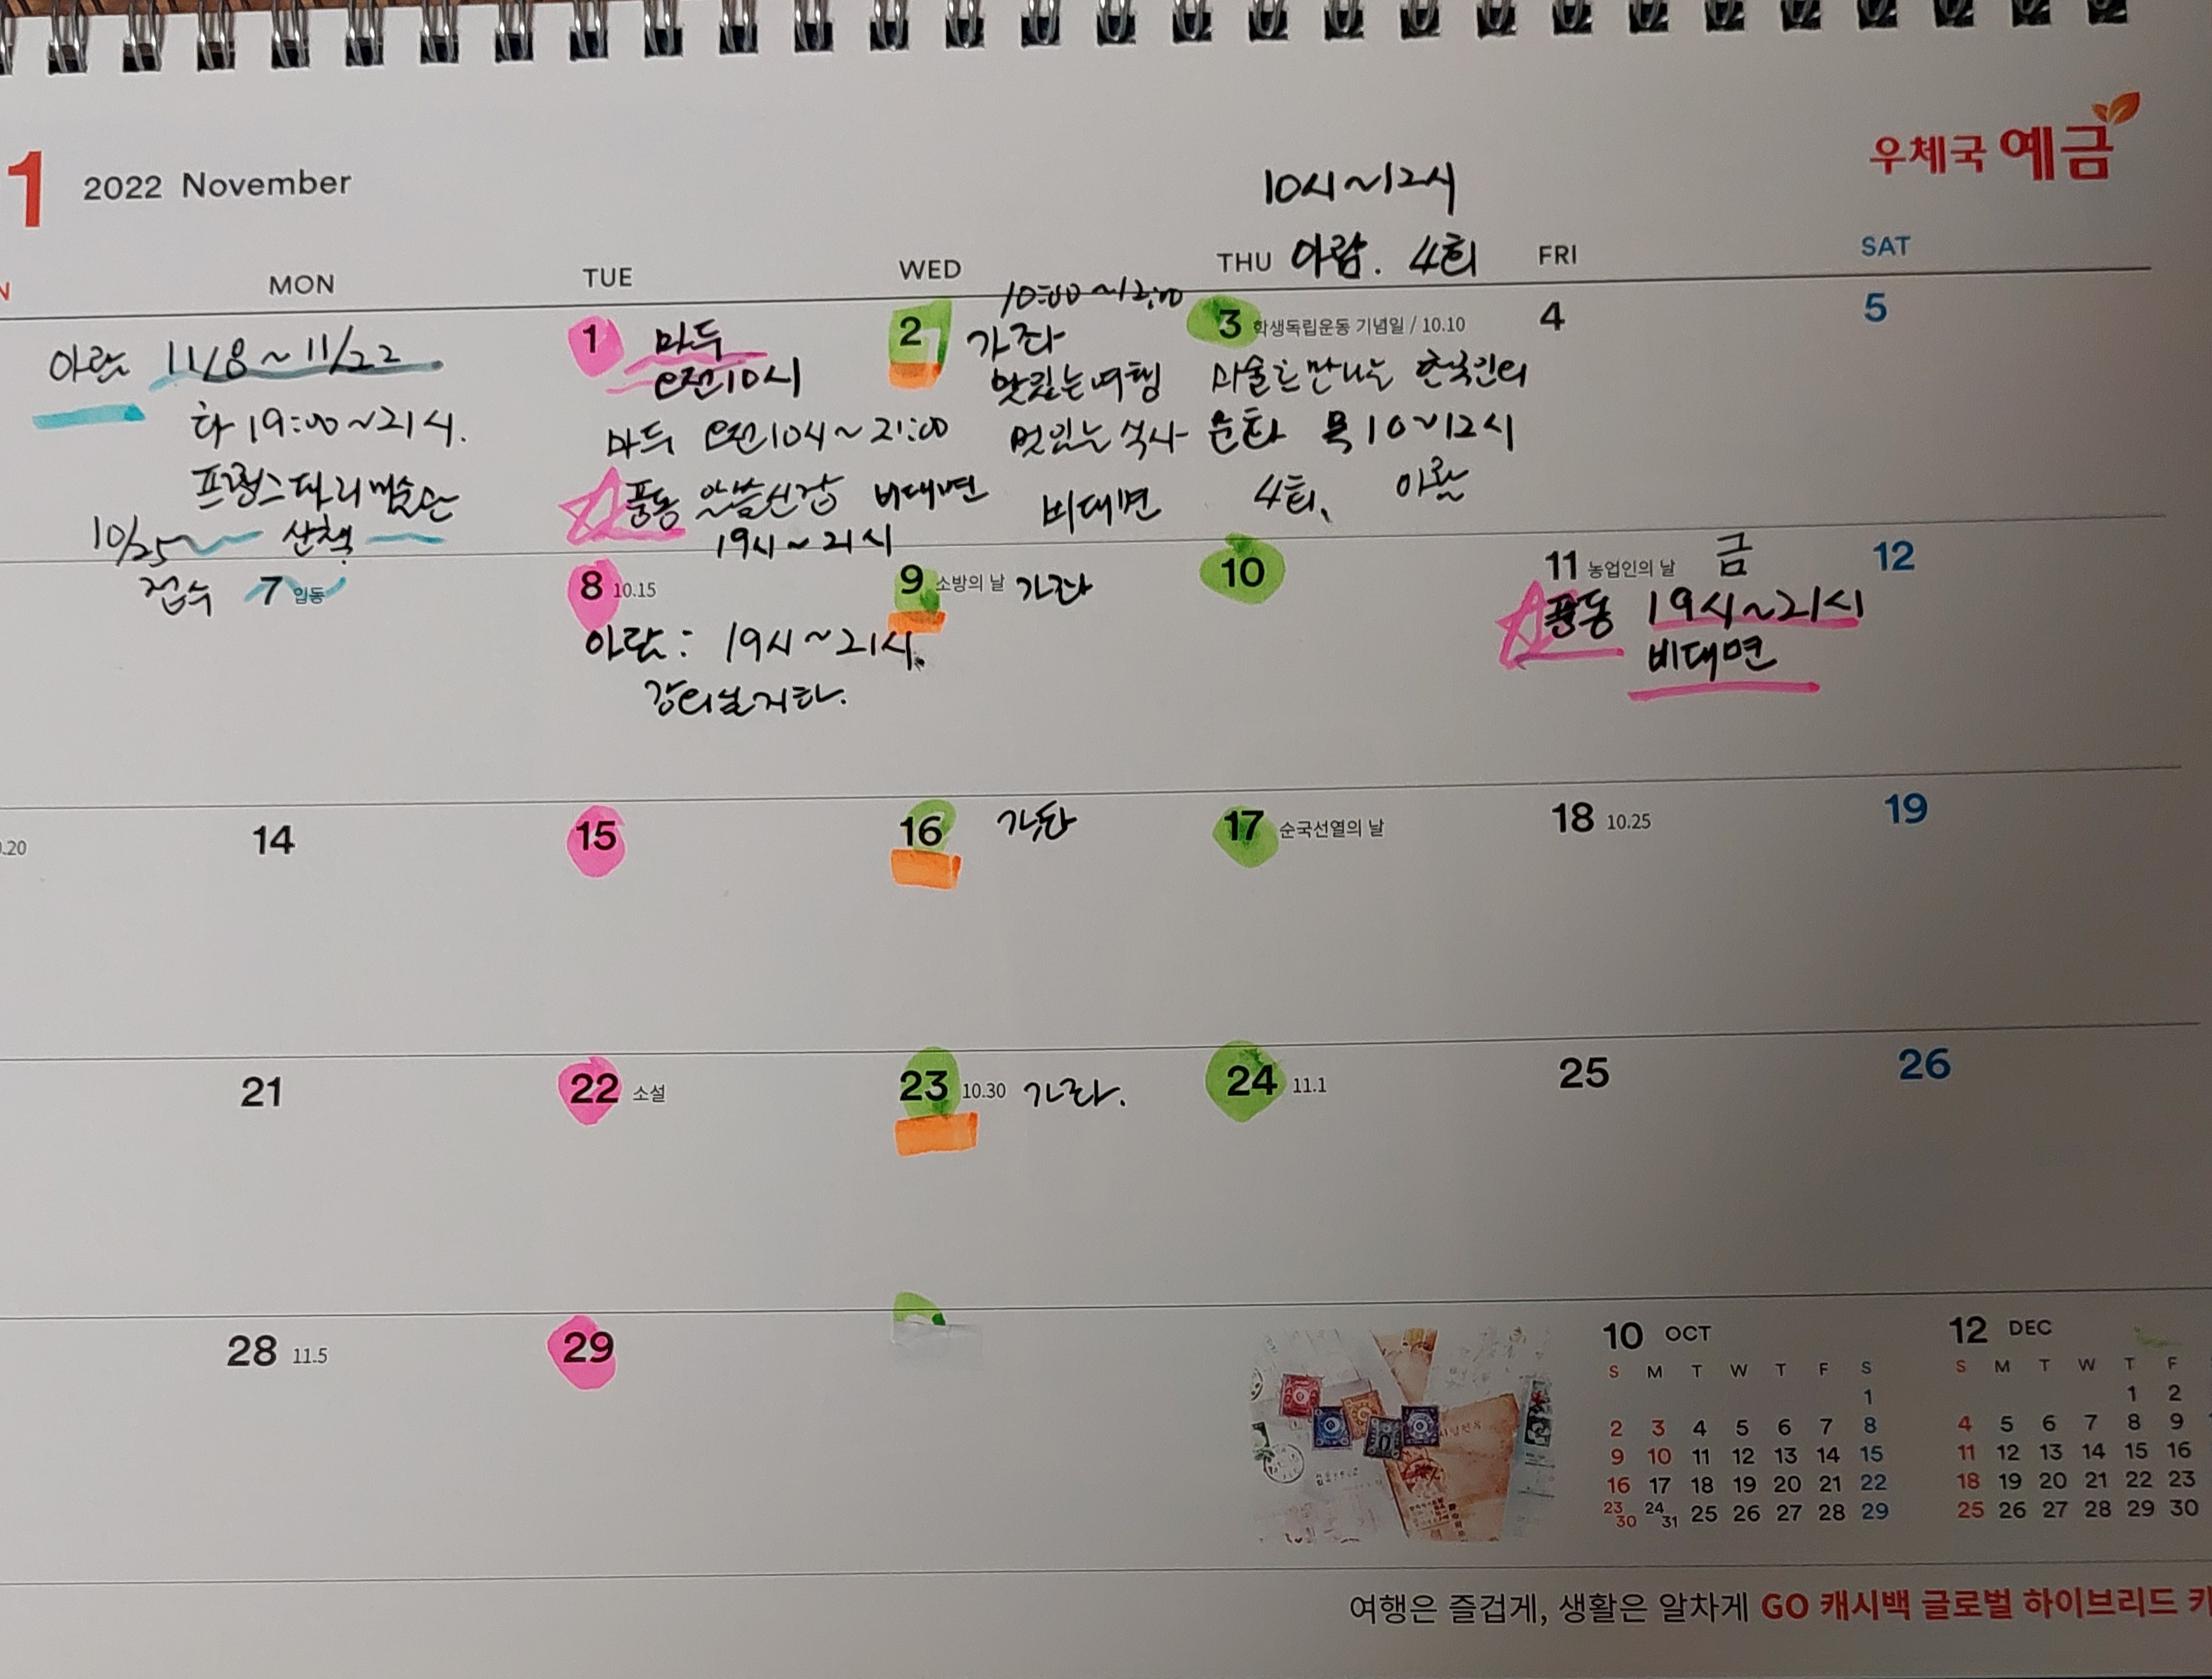 1 2022 November
우체국 예금
10시~12시
MON TUE WED THU 아람. 4회 FRI SAT
10:00~12:00
아람 11/8~11/22
화 19:00~21시.
프랑스 파리 미술관
10/25 산책
접수 7 입동
1 마두
오전10시
마두 오전10시~21:00
풍동 알쓸신잡 비대면
19시~21시
2 가좌
맛있는 여행
멋있는 식사
비대면
3 학생독립운동 기념일 / 10.10
미술로 만나는 한국인의
문화 목 10~12시
4회, 아람
4
5
8 10.15
아람: 19시~21시.
강의실 지하.
9 소방의 날 가좌
10
11 농업인의 날 금
풍동 19시~21시
비대면
12
0.20
14
15
16 가좌
17 순국선열의 날
18 10.25
19
21
22 소설
23 10.30 가좌.
24 11.1
25
26
28 11.5
29
10 OCT
S M T W T F S
1
2 3 4 5 6 7 8
9 10 11 12 13 14 15
16 17 18 19 20 21 22
23 30 24 31 25 26 27 28 29
12 DEC
S M T W T F
1 2
4 5 6 7 8 9
11 12 13 14 15 16
18 19 20 21 22 23
25 26 27 28 29 30
여행은 즐겁게, 생활은 알차게 GO 캐시백 글로벌 하이브리드 카